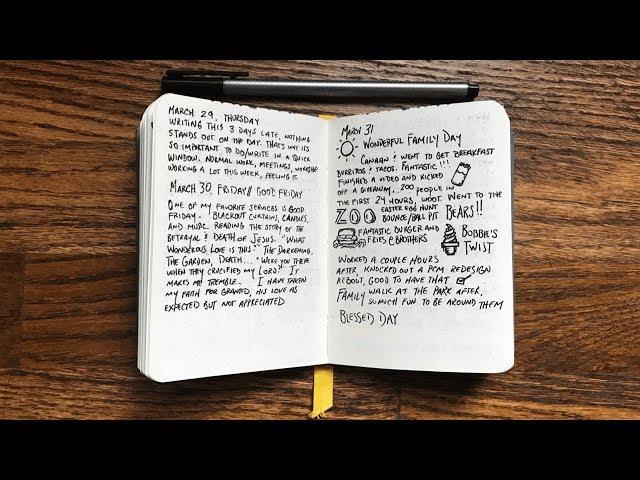 MARCH 29, THURSDAY
WRITING THIS 3 DAYS LATE, NOTHING
STANDS OUT ON THE DAY. THAT'S WHY IT'S
SO IMPORTANT TO DO/WRITE IN A QUICK
WINDOW. NORMAL WORK, MEETINGS, WORKSHOP
WORKING A LOT THIS WEEK, FEELING IT
MARCH 30, FRIDAY // GOOD FRIDAY
ONE OF MY FAVORITE SERVICES IS GOOD
FRIDAY. BLACKOUT CURTAINS, CANDLES,
AND MUSIC. READING THE STORY OF THE
BETRAYAL & DEATH OF JESUS. "WHAT
WONDEROUS LOVE IS THIS" THE DARKENING,
THE GARDEN, DEATH... "WERE YOU THERE
WHEN THEY CRUCIFIED MY LORD?" IT
MAKES ME TREMBLE. I HAVE TAKEN
MY FAITH FOR GRANTED, HIS LOVE AS
EXPECTED BUT NOT APPRECIATED
MARCH 31
WONDERFUL FAMILY DAY
CANAAN & I WENT TO GET BREAKFAST
BURRITOS & TACOS. FANTASTIC!!!
FINISHED A VIDEO AND KICKED
OFF A GIVEAWAY... 200 PEOPLE IN
THE FIRST 24 HOURS, WOOT. WENT TO THE
ZOO EASTER EGG HUNT BEARS!!
BOUNCE/BALL PIT
FANTASTIC BURGER AND BOBBIE'S
FRIES @ BROTHERS TWIST
WORKED A COUPLE HOURS
AFTER, KNOCKED OUT A PCM REDESIGN
REBOOT, GOOD TO HAVE THAT ☑
FAMILY WALK AT THE PARK AFTER,
SO MUCH FUN TO BE AROUND THEM
BLESSED DAY